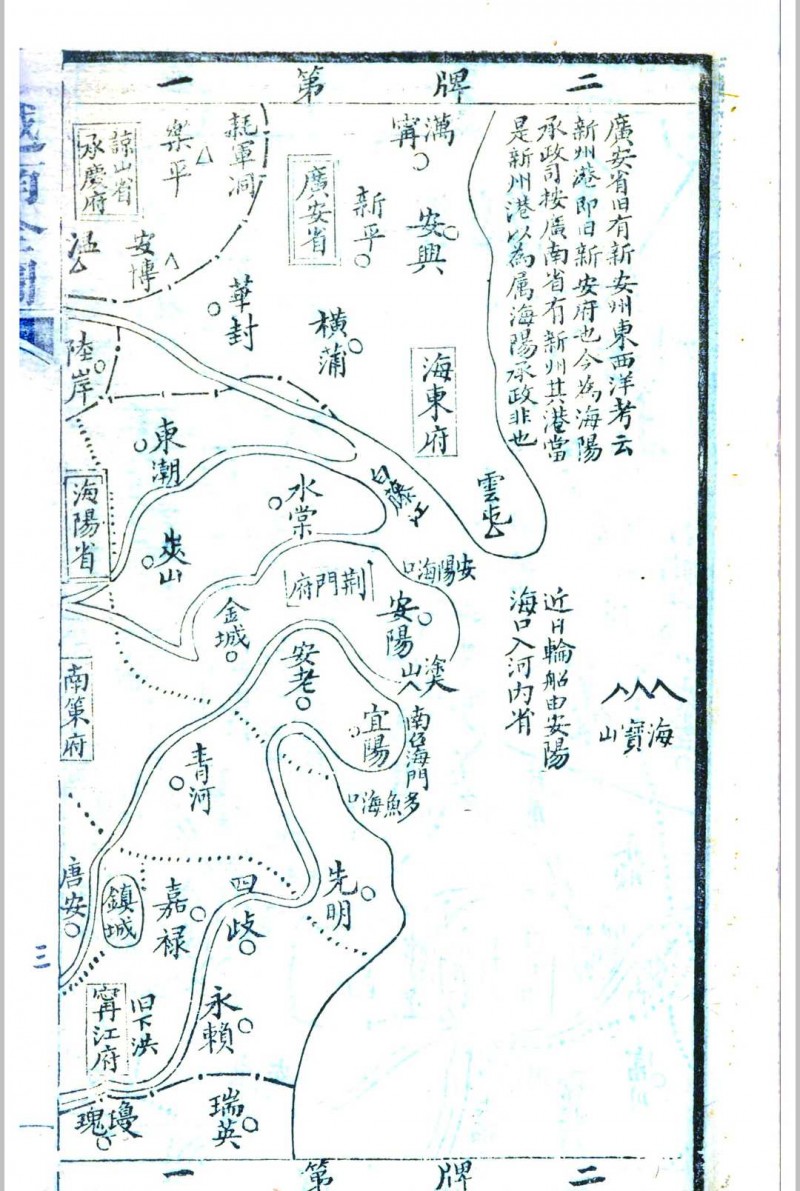 二牌第一
廣安省旧有新安州東西洋考云
新州港即旧新安府也今為海陽
承政司按廣南省有新州其港當
是新州港以為属海陽承政非也
萬寧
安興
新平
廣安省
耗軍洞
樂平
諒山省
承慶府
安博
華封
橫蒲
海東府
陸岸
東潮
白藤江
雲屯山
海陽省
水棠
夾山
荆門府
安陽海口
安陽
金城
塗山
近日輪船由安陽
海口入河内省
海寶山
南策府
安老
宜陽
南台海門
多魚海口
青河
先明
唐安
鎮城
嘉禄
四歧
三
寧江府
旧下洪
永賴
瓊瑰
瑞英
二牌第一